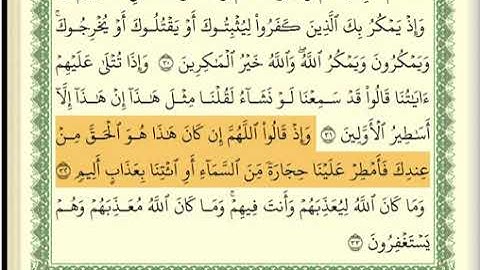 وَإِذْ يَمْكُرُ بِكَ ٱلَّذِينَ كَفَرُوا۟ لِيُثْبِتُوكَ أَوْ يَقْتُلُوكَ أَوْ يُخْرِجُوكَ ۚ
وَيَمْكُرُونَ وَيَمْكُرُ ٱللَّهُ ۖ وَٱللَّهُ خَيْرُ ٱلْمَـٰكِرِينَ ٣٠ وَإِذَا تُتْلَىٰ عَلَيْهِمْ
ءَايَـٰتُنَا قَالُوا۟ قَدْ سَمِعْنَا لَوْ نَشَآءُ لَقُلْنَا مِثْلَ هَـٰذَآ إِنْ هَـٰذَآ إِلَّآ
أَسَـٰطِيرُ ٱلْأَوَّلِينَ ٣١ وَإِذْ قَالُوا۟ ٱللَّهُمَّ إِن كَانَ هَـٰذَا هُوَ ٱلْحَقَّ مِنْ
عِندِكَ فَأَمْطِرْ عَلَيْنَا حِجَارَةً مِّنَ ٱلسَّمَآءِ أَوِ ٱئْتِنَا بِعَذَابٍ أَلِيمٍ ٣٢
وَمَا كَانَ ٱللَّهُ لِيُعَذِّبَهُمْ وَأَنتَ فِيهِمْ ۚ وَمَا كَانَ ٱللَّهُ مُعَذِّبَهُمْ وَهُمْ
يَسْتَغْفِرُونَ ٣٣